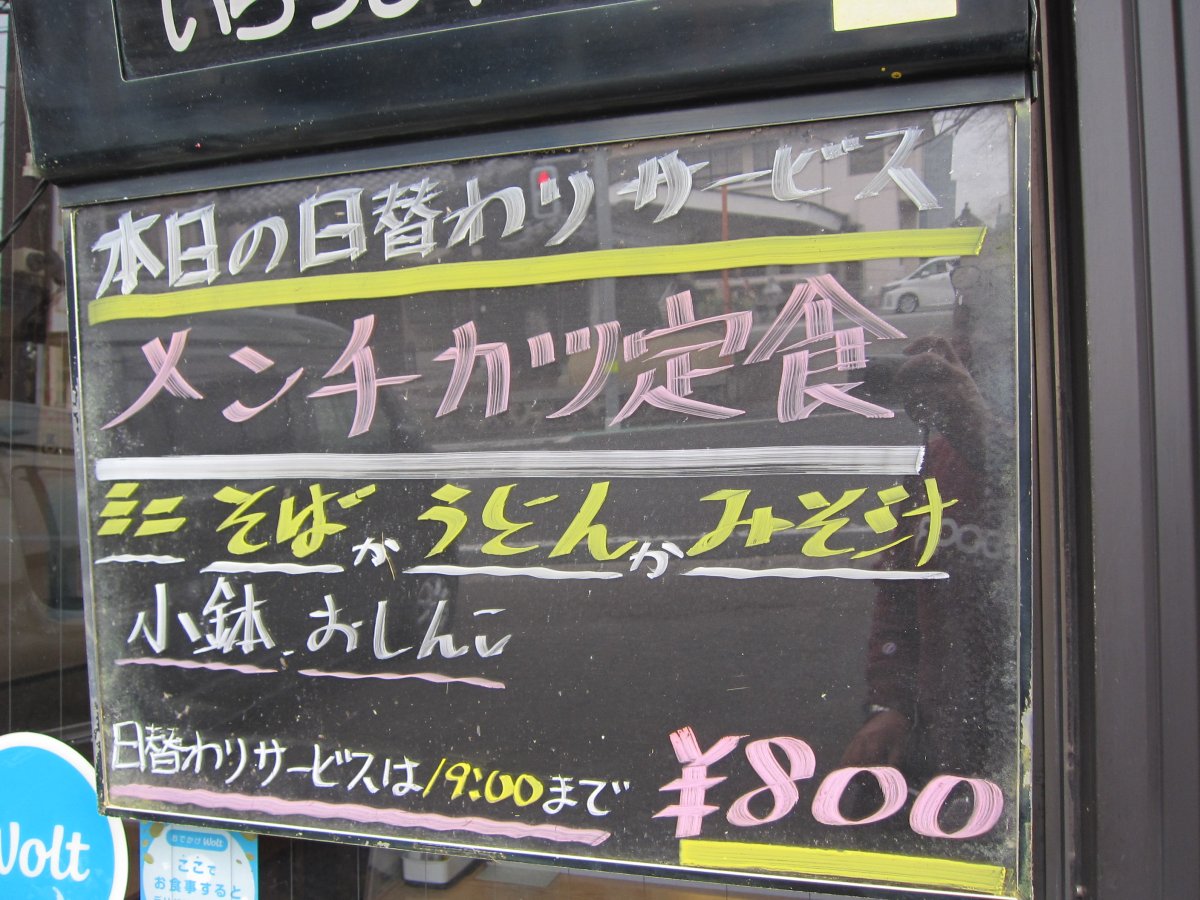 本日の日替わりサービス
メンチカツ定食
ミニそばかうどんかみそ汁
小鉢、おしんこ
日替わりサービスは19:00まで ¥800
Wolt
おでかけ Wolt
ここで
お食事すると